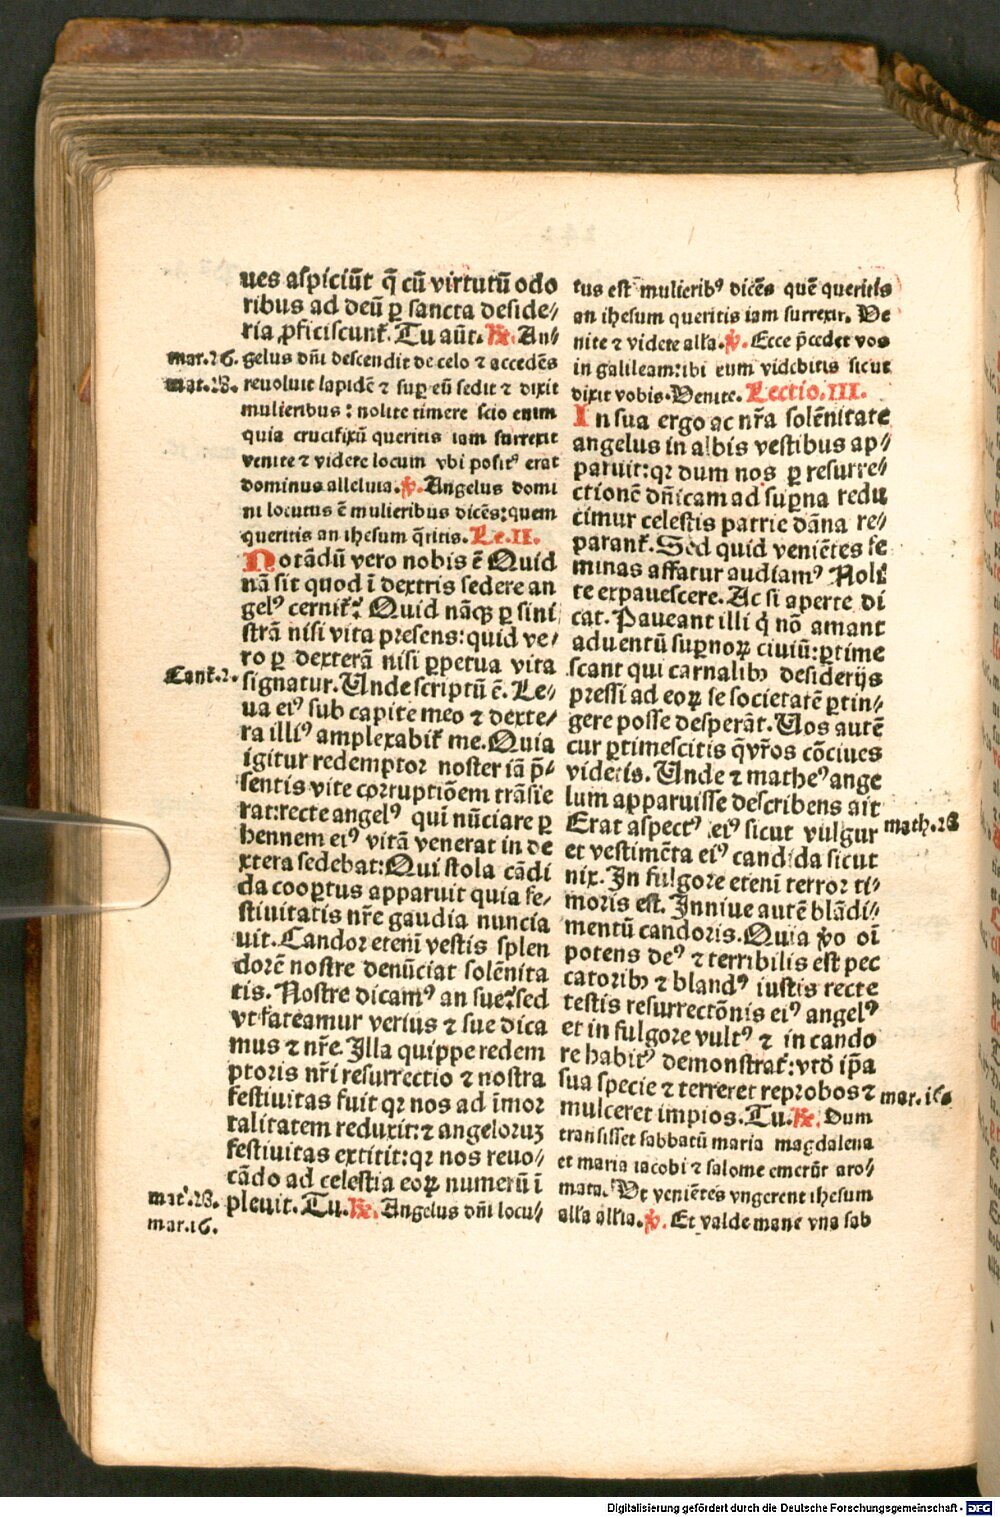 ues aspiciūt q̄ cū virtutū odo
ribus ad deū ꝑ sancta deside⸗
ria ꝓficiscunt̄. Tu aūt. ℟. An⸗
mar. 16. gelus dn̄i descendit de celo ⁊ accedēs
mat. 28. reuoluit lapidē ⁊ suꝑ eū sedit ⁊ dixit
mulieribus : nolite timere scio enim
quia crucifixū queritis iam surrexit
venite ⁊ videte locum vbi positꝰ erat
dominus alleluia. ℣. Angelus domi
ni locutus ē mulieribus dicēs: quem
queritis an ihesum q̄ritis. Le. II.
Notādū vero nobis ē Quid
nā sit quod ī dextris sedere an
gelꝰ cernit̄? Quid nāqꝫ ꝑ sini
strā nisi vita presens: quid ve⸗
ro ꝑ dexterā nisi ꝑpetua vita
Cant̄. 2. signatur. Unde scriptū ē. Le⸗
ua eiꝰ sub capite meo ⁊ dexte⸗
ra illiꝰ amplexabit̄ me. Quia
igitur redemptor noster iā p̄⸗
sentis vite corruptiōem trāsie
rat: recte angelꝰ qui nūciare ꝑ
hennem eiꝰ vitā venerat in de
xtera sedebat: Qui stola cādi
da cooꝑtus apparuit quia fe⸗
stiuitatis nr̄e gaudia nuncia
uit. Candor eteni vestis splen
dorē nostre denūciat solēnita
tis. Nostre dicamꝰ an sue? sed
vt fateamur verius ⁊ sue dica
mus ⁊ nr̄e. Illa quippe redem
ptoris nr̄i resurrectio ⁊ nostra
festiuitas fuit qꝛ nos ad īmor
talitatem reduxit: ⁊ angeloruꝫ
festiuitas extitit: qꝛ nos reuo⸗
cādo ad celestia eoꝝ numerū ī
mat̄. 28. pleuit. Tu. ℟. Angelus dn̄i locu⸗
mar. 16.
tus est mulieribꝰ dicēs quē queritis
an ihesum queritis iam surrexit. Ve
nite ⁊ videte alľa. ℣. Ecce p̄cedet vos
in galileam: ibi eum videbitis sicut
dixit vobis. Venite. Lectio. III.
In sua ergo ac nr̄a solēnitate
angelus in albis vestibus ap⸗
paruit: qꝛ dum nos ꝑ resurre⸗
ctionē dn̄icam ad suꝑna redu
cimur celestis patrie dāna re⸗
parant̄. Sed quid veniētes fe
minas affatur audiamꝰ Noli
te expauescere. Ac si aperte di
cat. Paueant illi q̇ nō amant
aduentū suꝑnoꝝ ciuiū: ꝑtime
scant qui carnalibꝫ desiderijs
pressi ad eoꝝ se societatē ꝑtin⸗
gere posse desperāt. Uos autē
cur ꝑtimescitis q̄ vr̄os cōciues
videtis. Unde ⁊ matheꝰ ange
lum apparuisse describens ait
Erat aspectꝰ eiꝰ sicut vulgur math. 28
et vestimēta eiꝰ candida sicut
nix. In fulgore eteni terror ti⸗
moris est. In niue autē blādi⸗
mentū candoris. Quia ꝟo oī
potens deꝰ ⁊ terribilis est pec
catoribꝫ ⁊ blandꝰ iustis recte
testis resurrectōnis eiꝰ angelꝰ
et in fulgore vultꝰ ⁊ in cando
re habitꝰ demonstrat̄: vt d ip̄a
sua specie ⁊ terreret reprobos ⁊ mar. 16.
mulceret impios. Tu. ℟. Dum
transisset sabbatū maria magdalena
et maria iacobi ⁊ salome emerūt aro⸗
mata. Vt veniētes vngerent ihesum
alľa alľia. ℣. Et valde mane vna sab
Digitalisierung gefördert durch die Deutsche Forschungsgemeinschaft - DFG